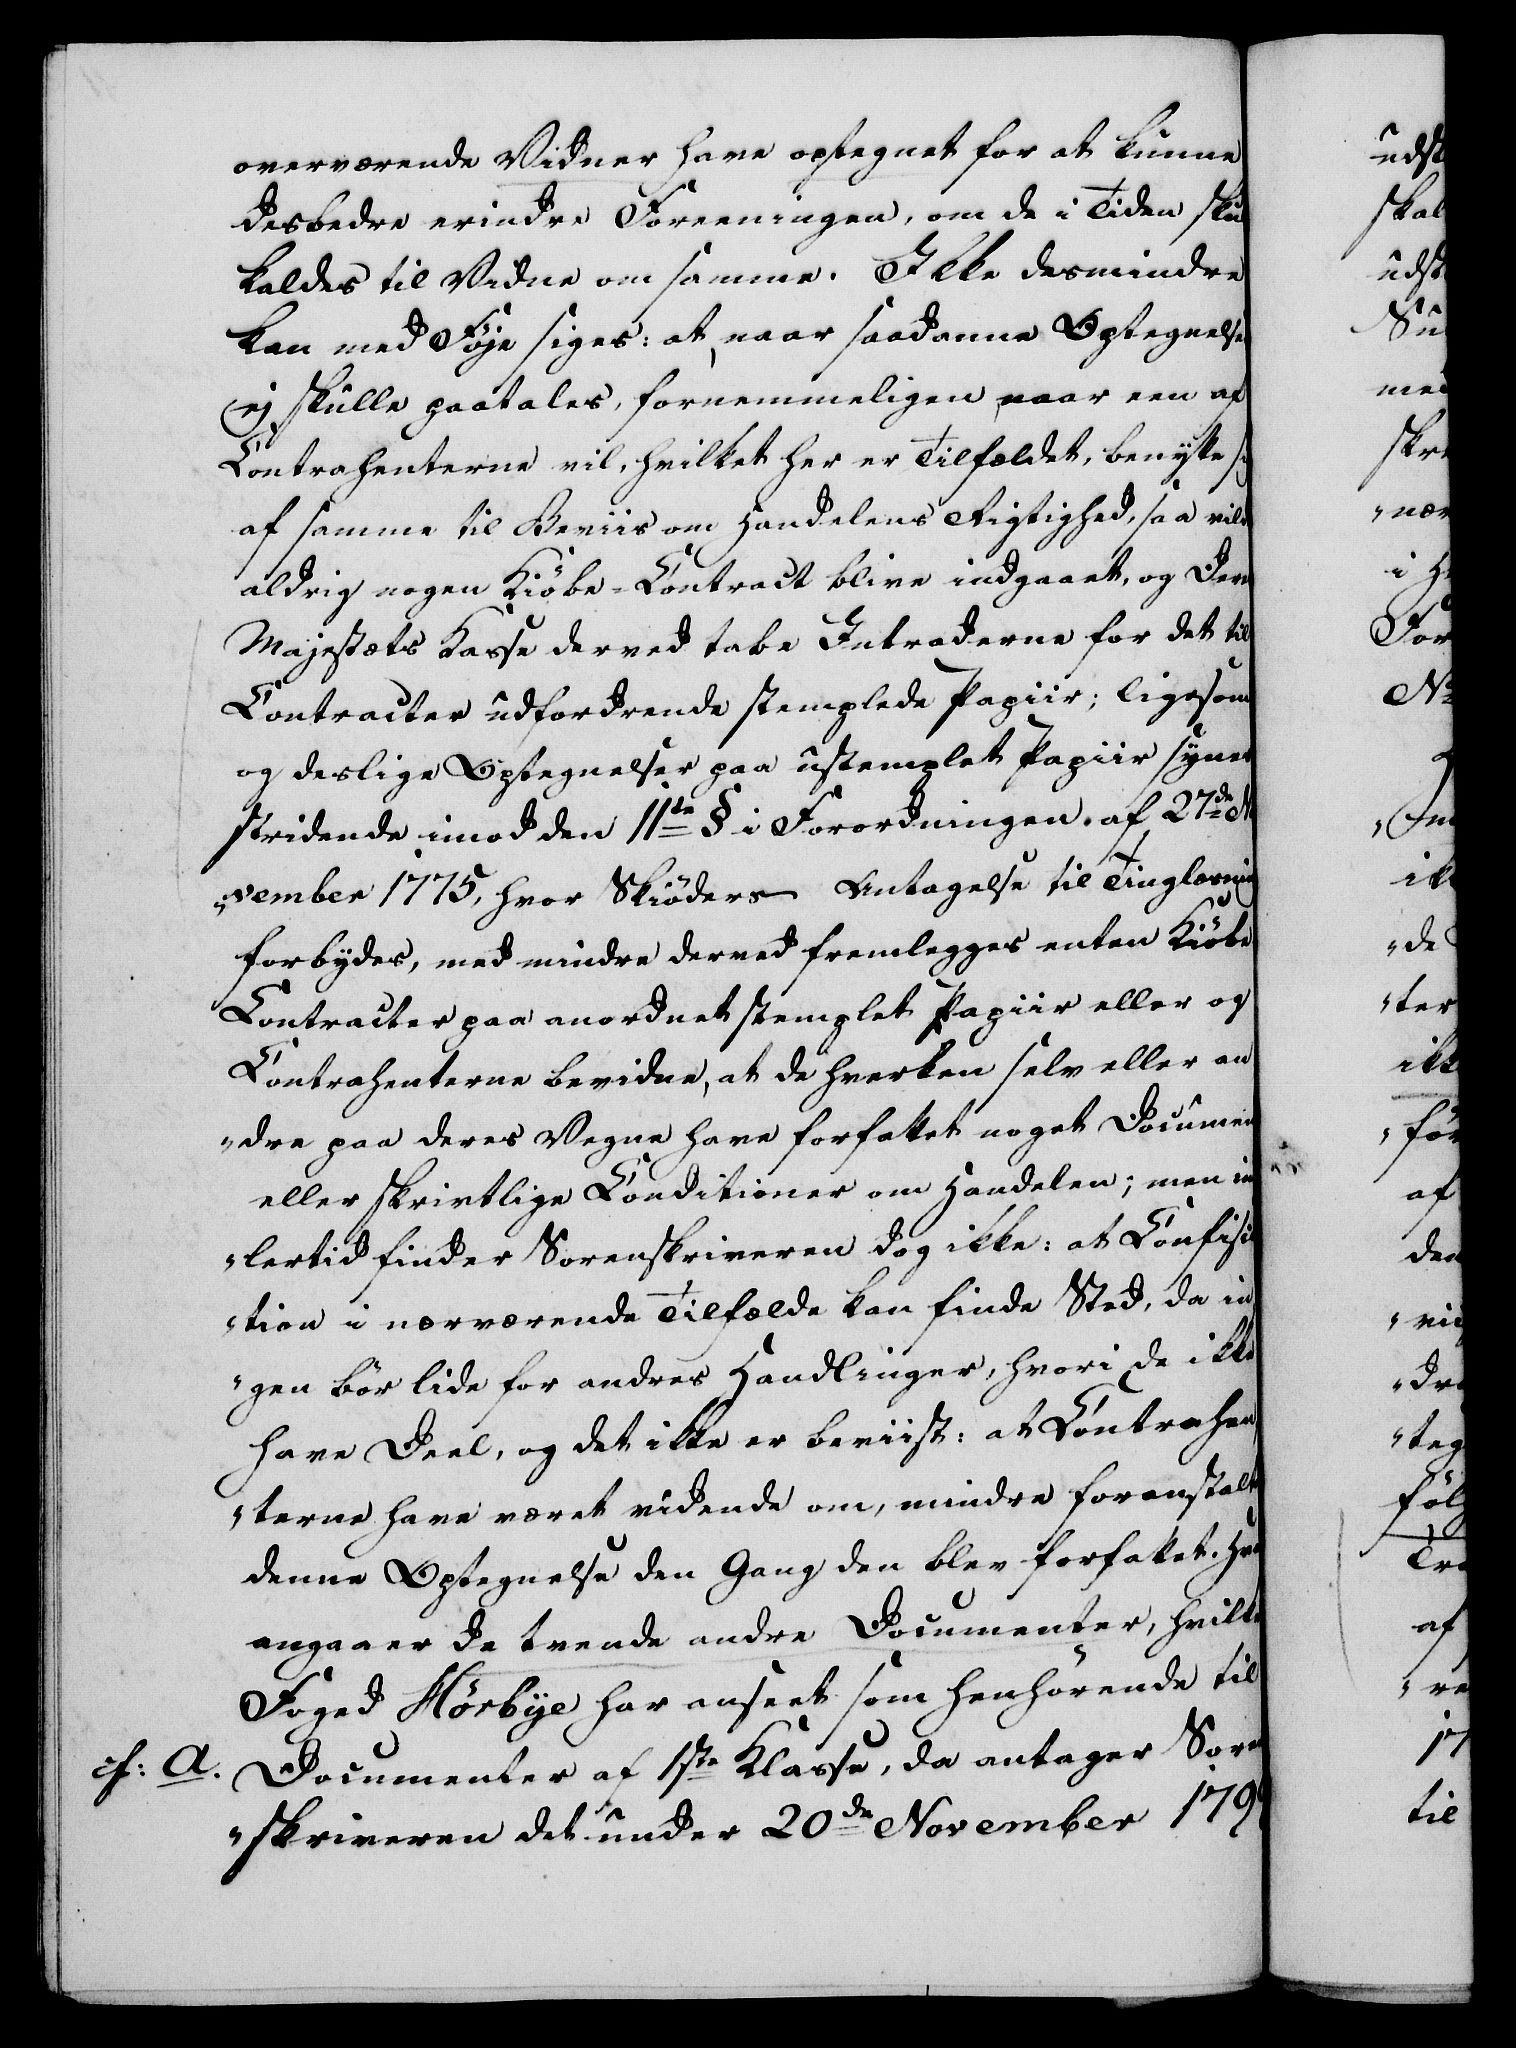 overværende Vidner have optegnet for at kunne
desbedre erindre Foreeningen, om de i Tiden sku
kaldes til Vidne om samme. Ikke desmindre
kan med Føje siges: at, naar saadanne Optegnelse
ej skulle paatales, fornemmeligen naar een af
Contrahenterne vil, hvilket her er Tilfældet, benytte si
af samme til Beviis om Handelens Rigtighed, saa vild
aldrig nogen Kiöbe-Contract blive indgaaet, og Der
Majestæts Kasse derved tabe Intraderne for det til
Contracter udfordrende stemplede Papiir; ligesom
og deslige Optegnelser paa ustemplet Papiir synes
stridende imod den 11te § i Forordningen af 27de N
„vember 1775, hvor Skiöders Antagelse til Tinglæsnin
forbydes, med mindre derved fremlegges enten Kiöbe
Contracter paa anordnet stemplet Papiir eller og
Contrahenterne bevidne, at de hverken selv eller an
„dre paa deres Vegne have forfattet noget Documen
eller skrivtlige Conditioner om Handelen; men im
„lertid finder Sorenskriveren dog ikke: at Confisi
„tion i nærværende Tilfælde kan finde Sted, da in
„gen bör lide for andres Handlinger, hvori de ikke
have Deel, og det ikke er beviist: at Contrahen
„terne have været vidende om, mindre foranstalt
denne Optegnelse den Gang den blev forfattet. Hva
angaaer de tvende andre Documenter, hvilke
Foged Hörbye har anseet som henhörende til
cf: A. Documenter af 1ste Klasse, da antager Soren
„skriveren det under 20de November 179
udst
skal
udst
Su
med
skre
„nær
i H
For
No
ikk
„de
„ter
ikk
„för
af
den
„vi
„dra
„teg
föl
Tra
af
„re
17
til